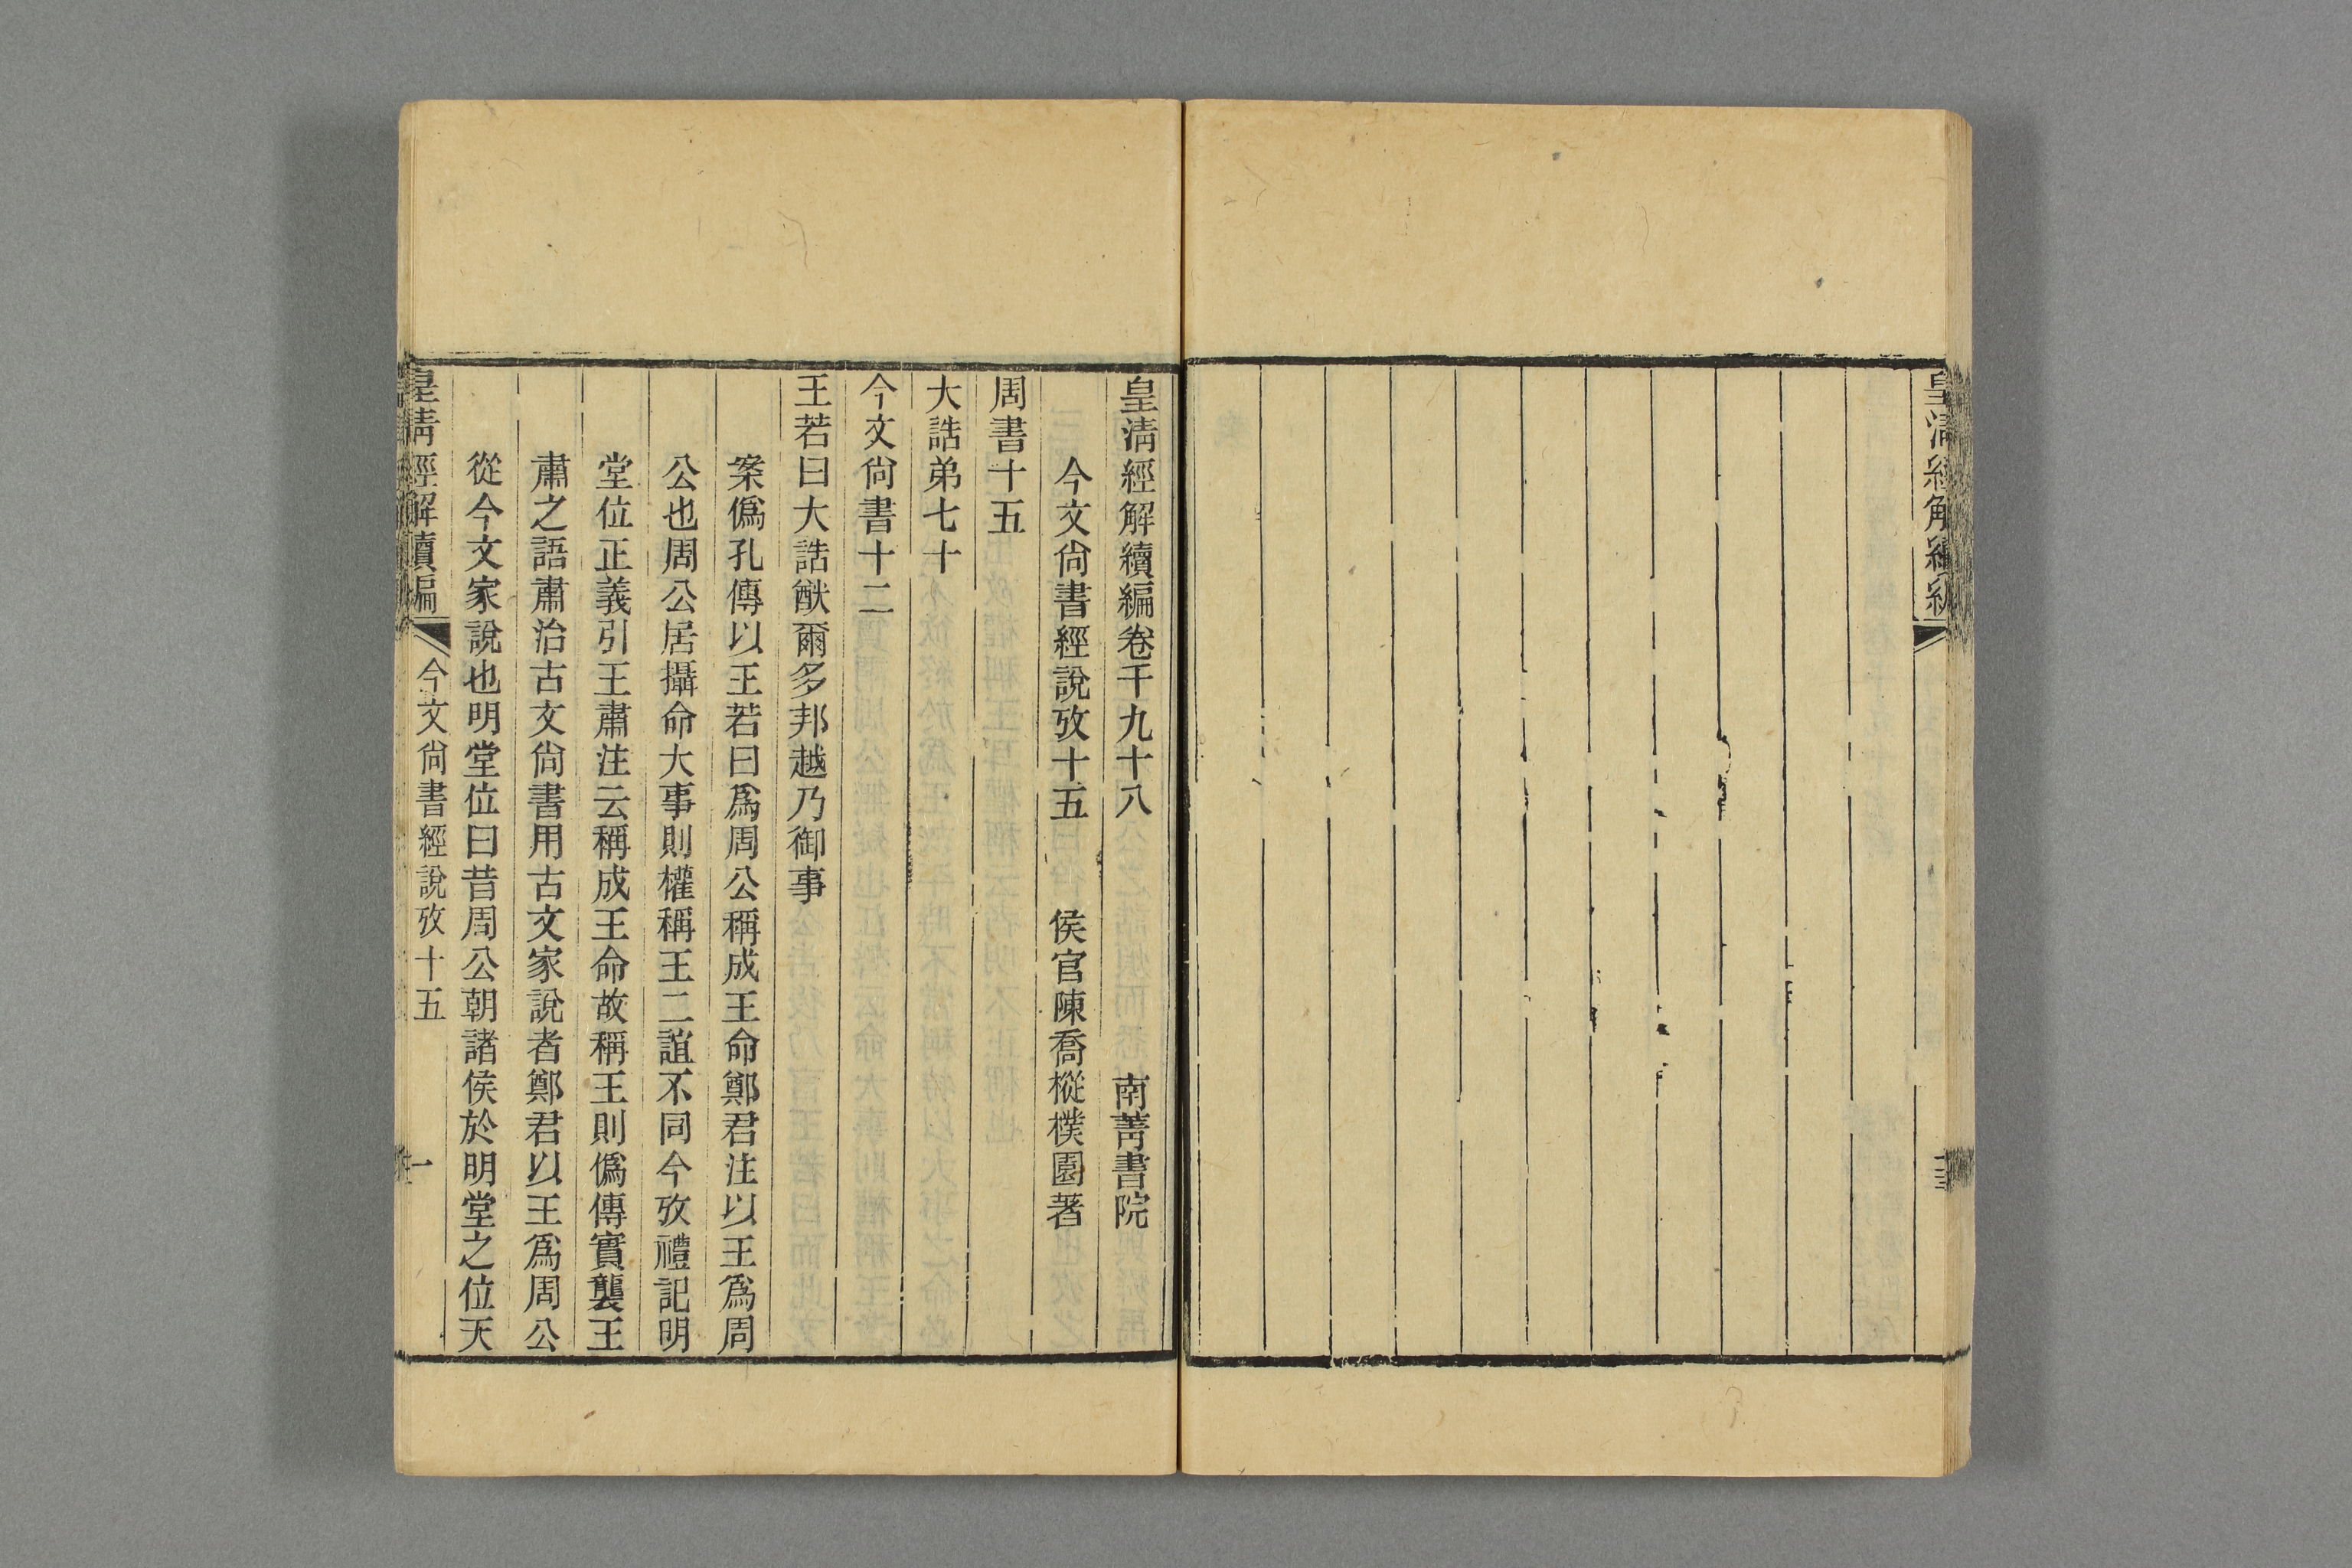 皇清經解續編
皇清經解續編卷千九十八　南菁書院
今文尙書經說攷十五　侯官陳喬樅樸園著
周書十五
大誥弟七十
今文尙書十二
王若曰大誥猷爾多邦越乃御事
案僞孔傳以王若曰爲周公稱成王命鄭君注以王爲周
公也周公居攝命大事則權稱王二誼不同今攷禮記明
堂位正義引王肅注云稱成王命故稱王則僞傳實襲王
肅之語肅治古文尙書用古文家說者鄭君以王爲周公
從今文家說也明堂位曰昔周公朝諸侯於明堂之位天
皇清經解續編　今文尙書經說攷十五　一